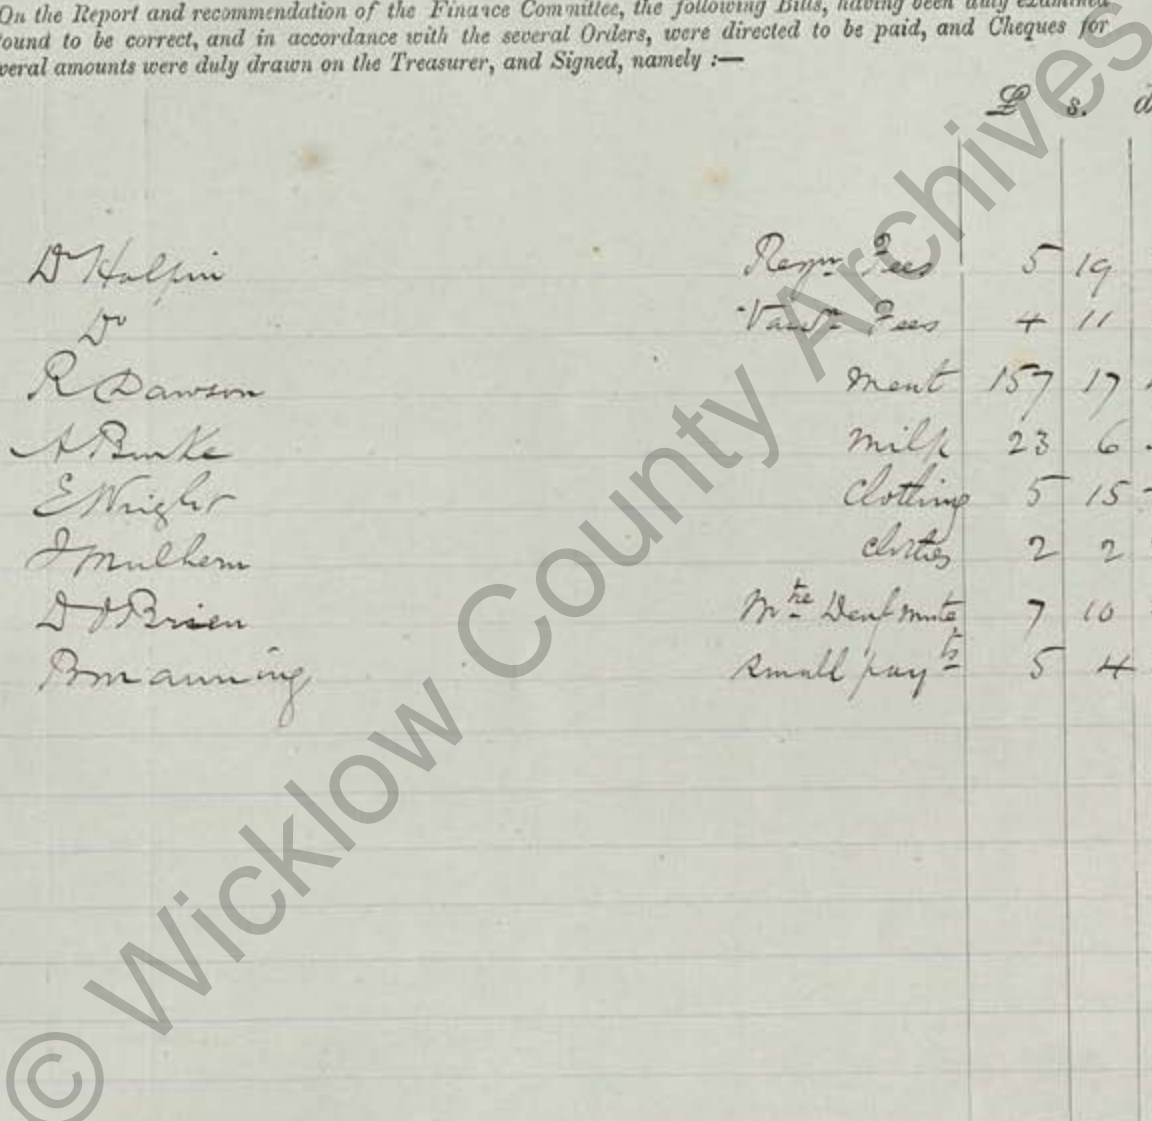 On the Report and recommendation of the Finance Committee, the following Bills, having been duly examined
ound to be correct, and in accordance with the several Orders, were directed to be paid, and Cheques for
veral amounts were duly drawn on the Treasurer, and Signed, namely :—
£ s. d
Dr Halpin Regn Fees 5 19
Do Fees 4 11
R Dawson meat 157 17
A Burke milk 23 6
E Wright Clothing 5 15
J Mulhern clothes 2 2
D O'Brien Mtce Deaf mute 7 10
B Manning small payts 5 4
© Wicklow County Archives